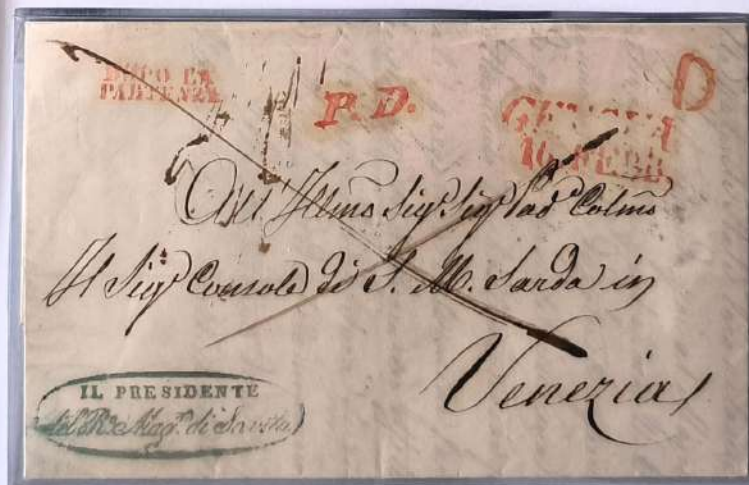 DOPO LA
PARTENZA
P. D.
D
GENOVA
10 FEBB.
All' Illmo Sigr Sigr Pad. Colmo
Il Sigr Console di S. M. Sarda in
Venezia
IL PRESIDENTE
del Ro. Magto. di